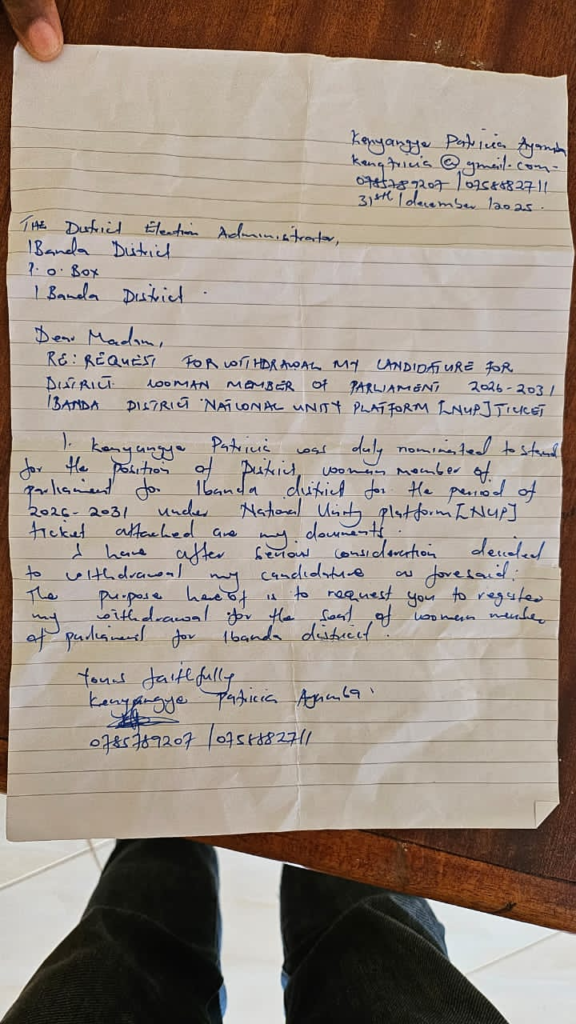 Kenyangye Patricia Ayamba
kengtricia@gmail.com-
0785789207 / 0758882711
31st / december / 2025.
THE District Election Administrator,
IBanda District
P. O. Box
IBanda District.
Dear Madam,
RE: REQUEST FOR WITHDRAWAL MY CANDIDATURE FOR
DISTRICT WOMAN MEMBER OF PARLIAMENT 2026-2031
IBANDA DISTRICT NATIONAL UNITY PLATFORM [NUP] TICKET
I. Kenyangye Patricia was duly nominated to stand
for the position of District woman member of
parliament for Ibanda district for the period of
2026-2031 under National Unity platform [NUP]
ticket attached are my documents.
I have after serious consideration decided
to withdrawal my candidature as foresaid.
The purpose hereof is to request you to register
my withdrawal for the seat of woman member
of parliament for Ibanda district.
Yours faithfully
Kenyangye Patricia Ayamba.
0785789207 / 0758882711